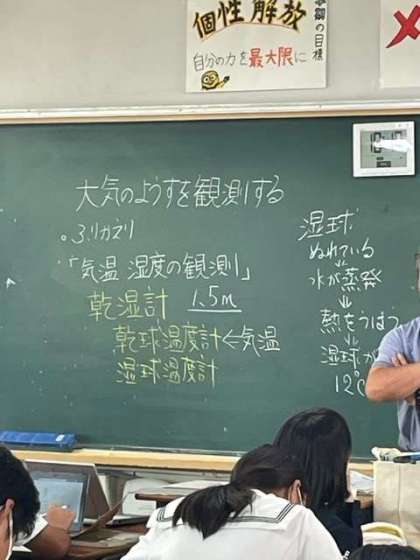 個性解放
の目標
自分の力を最大限に
大気のようすを観測する
。ふりかえり
「気温 湿度の観測」
乾湿計 1.5m
乾球温度計←気温
湿球温度計
湿球
ぬれている
↓
水が蒸発
↓
熱をうばう
↓
湿球が
12℃